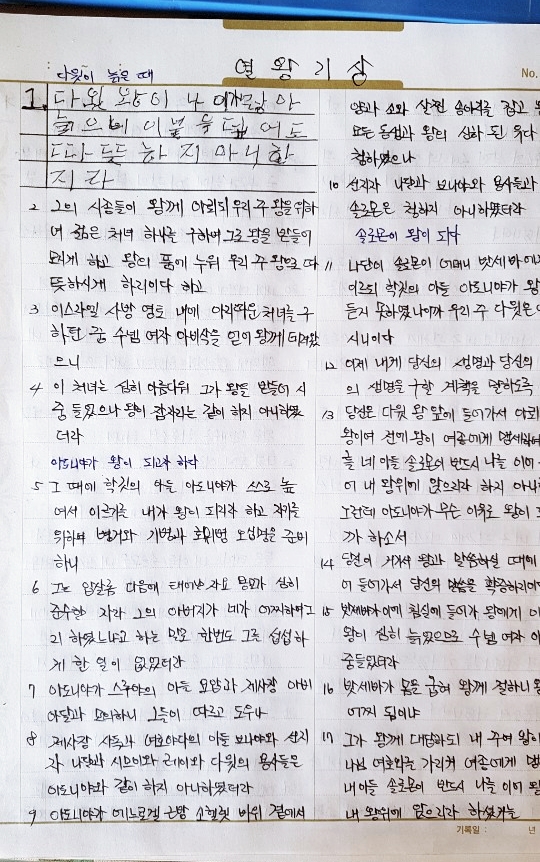 열왕기상
No.
다윗이 늙은 때
1. 다윗 왕이 나 이가 많아
늙으매 이불을 덮어도
따뜻하지 아니한
지라
2 그의 시종들이 왕께 아뢰되 우리 주 왕을 위하
여 젊은 처녀 하나를 구하여 그로 왕을 받들어
모시게 하고 왕의 품에 누워 우리 주 왕으로 따
뜻하시게 하리이다 하고
3 이스라엘 사방 영토 내에 아리따운 처녀를 구
하던 중 수넴 여자 아비삭을 얻어 왕께 데려왔
으니
4 이 처녀는 심히 아름다워 그가 왕을 받들어 시
중 들었으나 왕이 잠자리는 같이 하지 아니하였
더라
아도니야가 왕이 되고자 하다
5 그 때에 학깃의 아들 아도니야가 스스로 높
여서 이르기를 내가 왕이 되리라 하고 자기를
위하여 병거와 기병과 호위병 오십명을 준비
하니
6 그는 압살롬 다음에 태어난 자요 용모가 심히
준수한 자라 그의 아버지가 네가 어찌하여 그
리 하였느냐고 하는 말로 한번도 그를 섭섭하
게 한 일이 없었더라
7 아도니야가 스루야의 아들 요압과 제사장 아비
아달과 모의하니 그들이 따르고 도우나
8 제사장 사독과 여호야다의 아들 브나야와 선지
자 나단과 시므이와 레이와 다윗의 용사들은
아도니야와 같이 하지 아니하였더라
9 아도니야가 에느로겔 근방 소헬렛 바위 곁에서
양과 소와 살찐 송아지를 잡고
모든 동생과 왕의 신하 된 유다
청하였으나
10 선지자 나단과 브나야와 용사들과
솔로몬은 청하지 아니하였더라
솔로몬이 왕이 되다
11 나단이 솔로몬의 어머니 밧세바에게
이르되 학깃의 아들 아도니야가 왕이
듣지 못하였나이까 우리 주 다윗은
시나이다
12 이제 내게 당신의 생명과 당신의
의 생명을 구할 계책을 말하도록
13 당신은 다윗 왕 앞에 들어가서 아뢰
왕이여 전에 왕이 여종에게 맹세하여
를 네 아들 솔로몬이 반드시 나를 이어
어 내 왕위에 앉으리라 하지 아니
그런데 아도니야가 무슨 이유로 왕이
까 하소서
14 당신이 거기서 왕과 말씀하실 때에
어 들어가서 당신의 말씀을 확증하리이
15 밧세바가 이에 침실에 들어가 왕에게
왕이 심히 늙었으므로 수넴 여자
중들었더라
16 밧세바가 몸을 굽혀 왕께 절하니
어찌 됨이냐
17 그가 왕께 대답하되 내 주여 왕이
나님 여호와를 가리켜 여종에게
네 아들 솔로몬이 반드시 나를 이어 왕
내 왕위에 앉으리라 하셨거늘
기록일 : 년